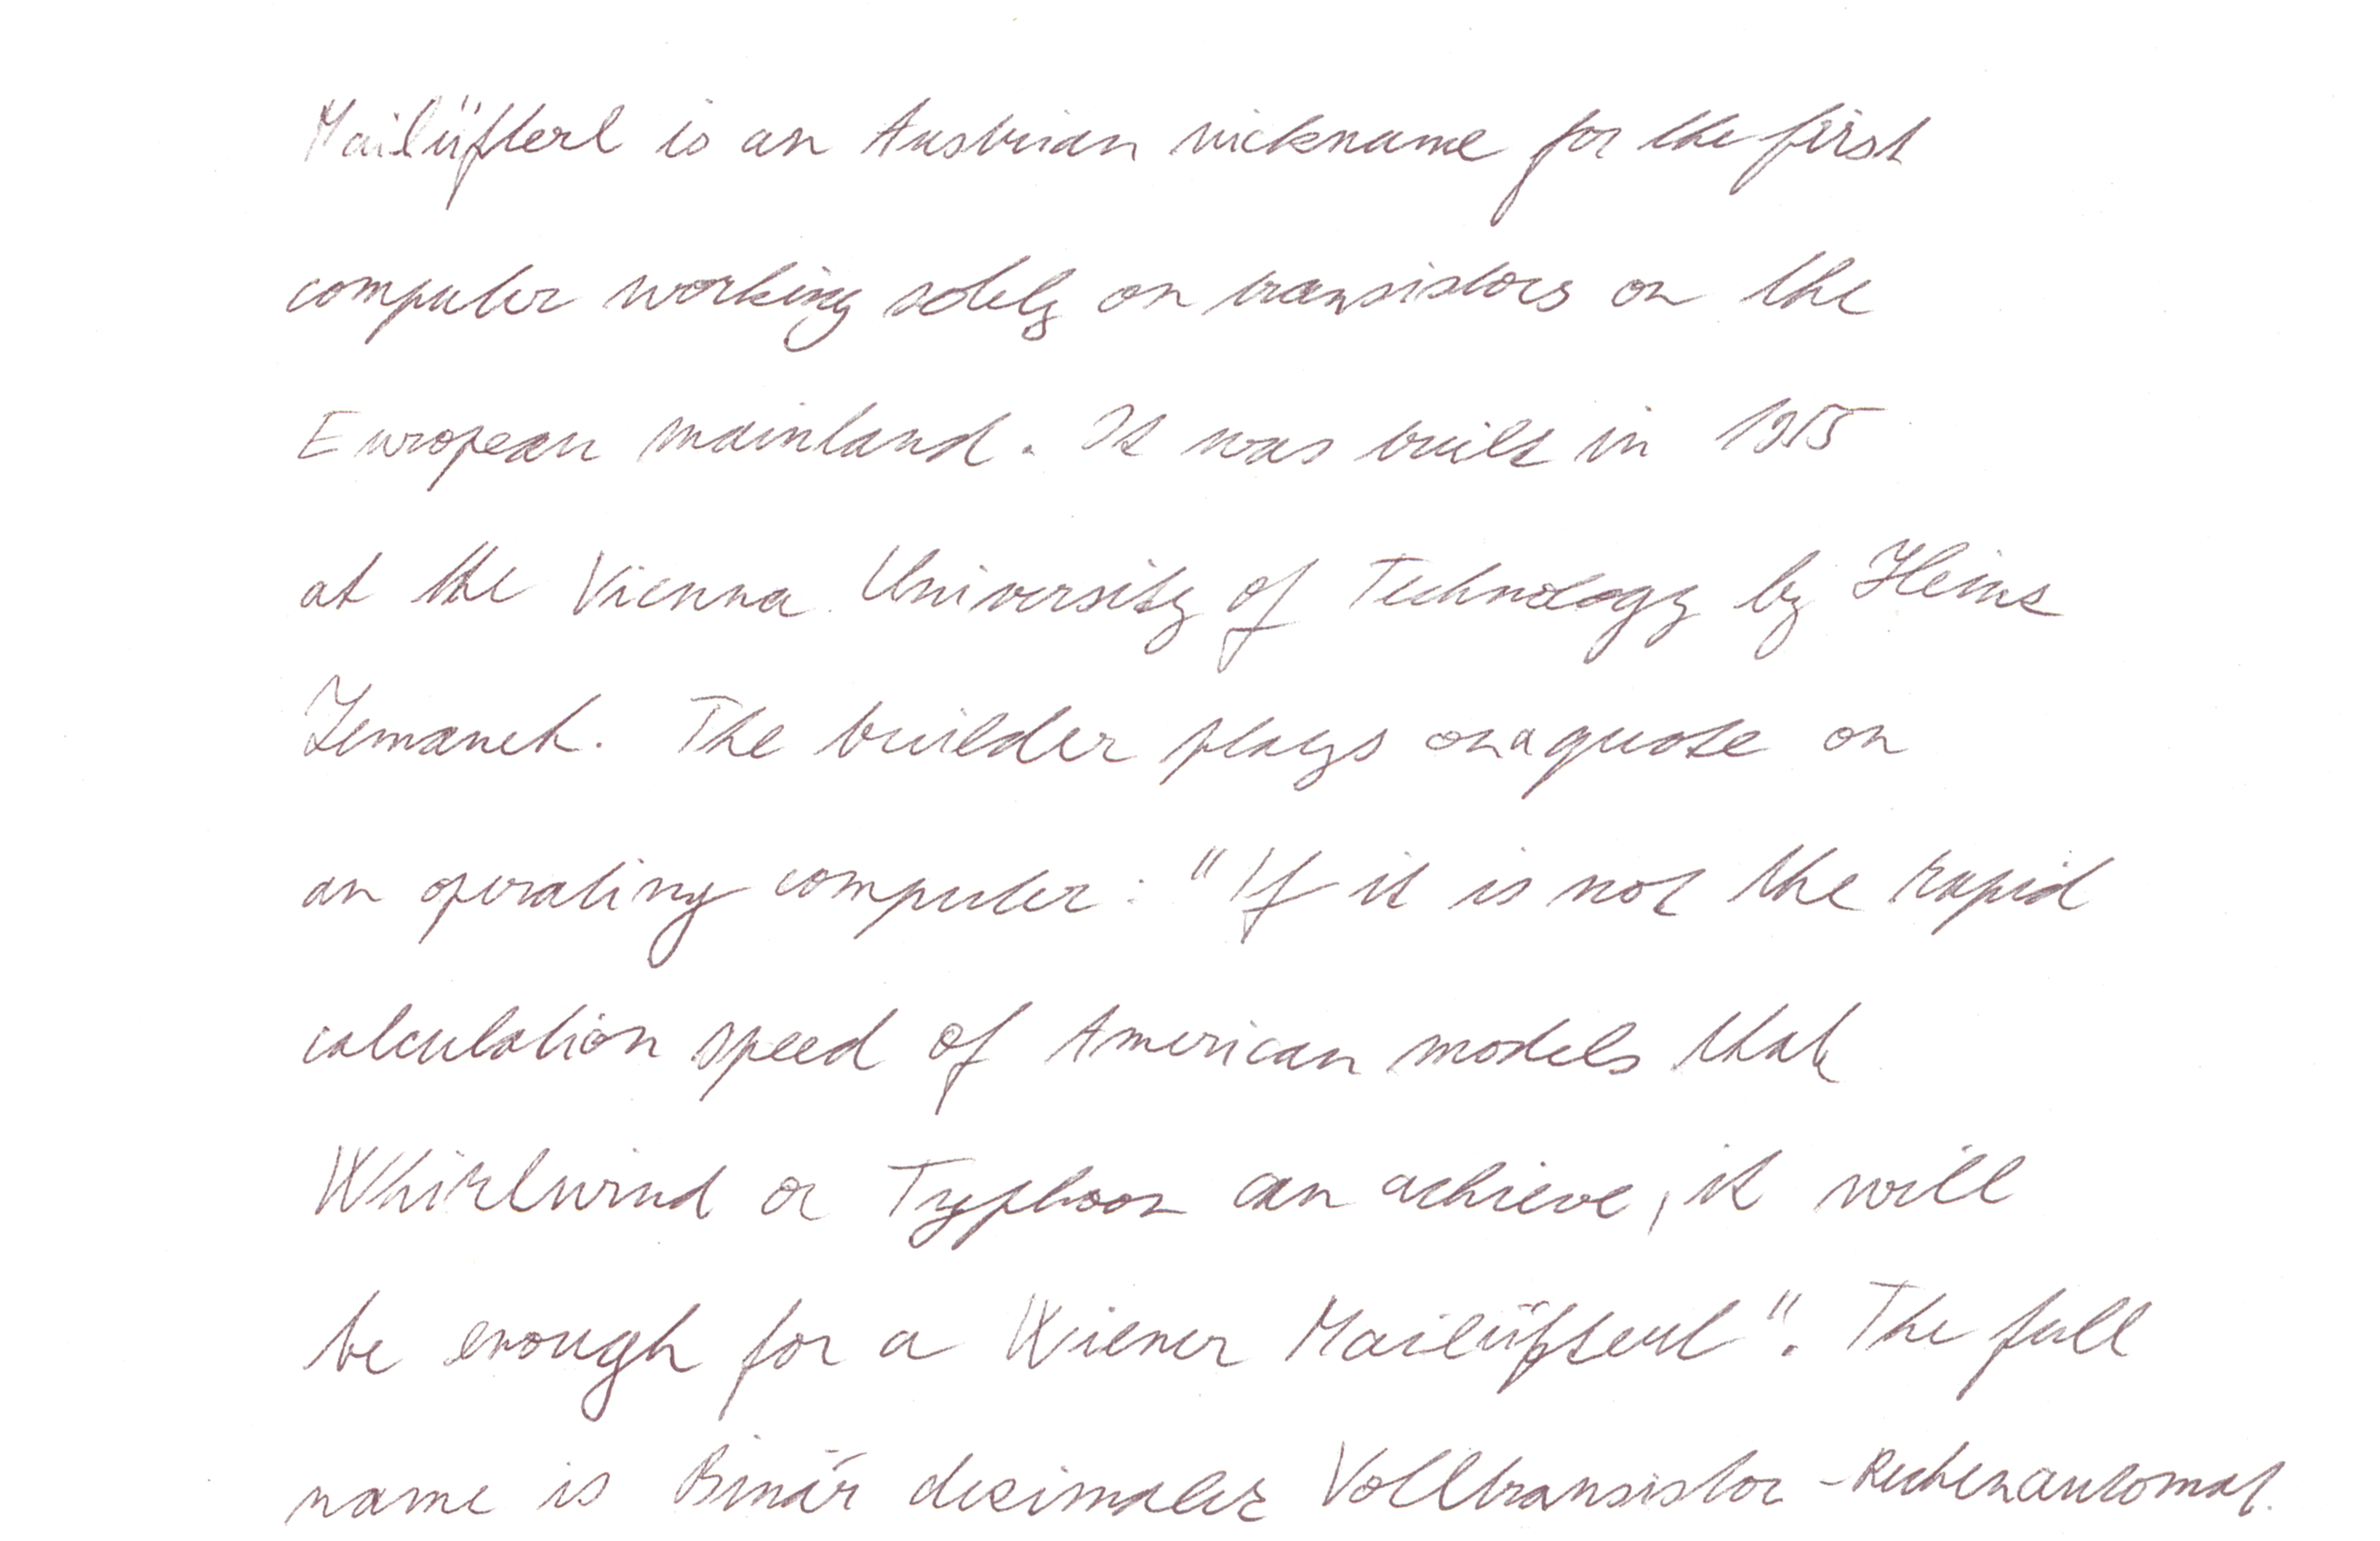 Mailüfterl is an Austrian nickname for the first
computer working solely on transistors on the
European mainland. It was built in 1955
at the Vienna University of Technology by Heinz
Zemanek. The builder plays on a quote on
an operating computer: "If it is not the rapid
calculation speed of American models that
Whirlwind or Typhoon can achieve, it will
be enough for a Wiener Mailüfterl". The full
name is Binär dezimaler Volltransistor-Rechenautomat.